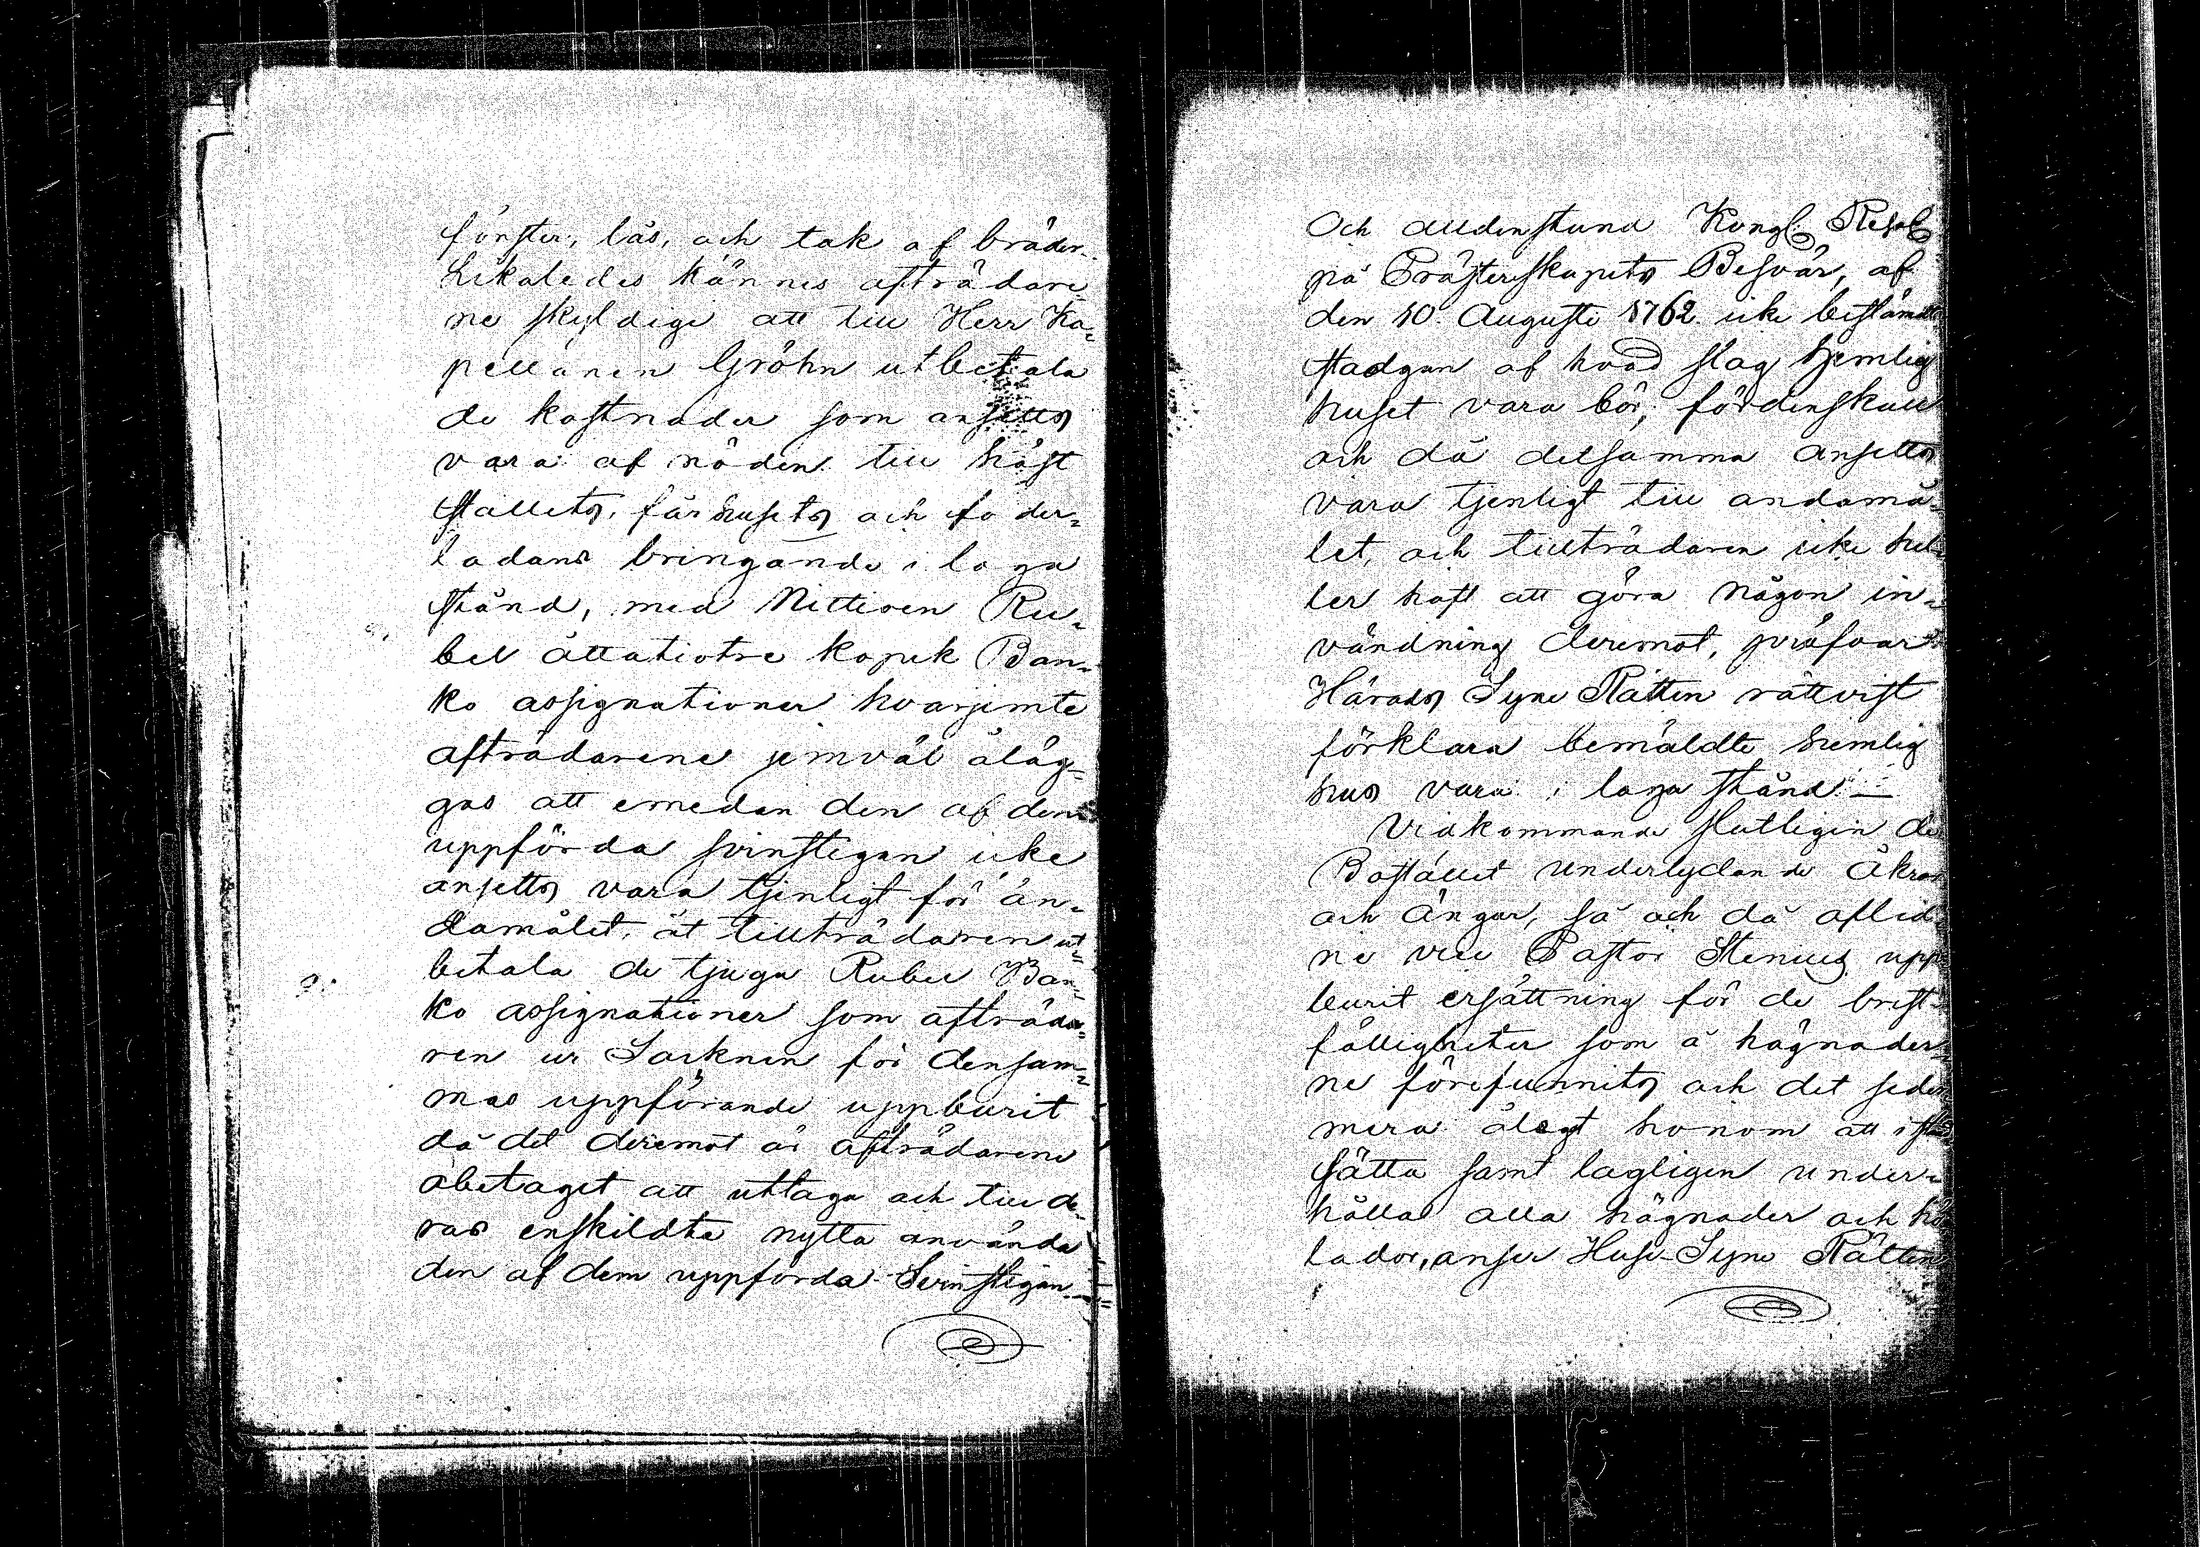 fönster, lås, och tak af bräder.
Likaledes kännes afträdare
ne skyldige att till Herr Ka-
pellanen Gröhn utbetala
de kostnader som ansetts
vara af nöden till häst
stallets, fårhusets och foder-
ladans bringande i laga
stånd, med Nittioen Ru-
bel åttatiotre kopek Ban-
ko assignationer hvarjemte
afträdarene jemväl åläg-
gas att emedan den af dem
uppförda svinstigan icke
ansetts vara tjenligt för än-
damålet, åt tillträdaren ut-
betala de tjugu Rubel Ban-
ko assignationer som afträda-
ren ur Socknen för densam-
mas uppförande uppburit
då det deremot är afträdarene
obetaget att uttaga och till de-
ras enskildta nytta använda
den af dem uppförda Svinstigan.
Och alldenstund Kongl. Resol.
på Presterskapets Besvär, af
den 10 Augusti 1762 icke bestämdt
stadgan af hvad slag hemlig
huset vara bör, fördenskull
och då detsamma ansetts
vara tjenligt till ändamå-
let, och tillträdaren icke hel-
ler haft att göra någon in-
vändning deremot, pröfvar
Härads Syne Rätten rättvist
förklara bemäldte hemlig
hus vara i laga stånd. —
Vidkommande slutligen de
Bostället underlydande Åkrar
och Ängar, så och då aflid-
ne vice Pastor Stenius upp-
burit ersättning för de brist-
fälligheter som å hägnader-
ne förefunnits och det seder-
mera ålegat honom att i stånd
sätta samt lagligen under-
hålla alla hägnader och hö
lador, anser Huse-Syne Rätten